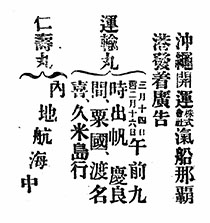 沖繩開運株式会社汽船那覇
港發着廣告
運輸丸
三月十四日
舊二月十六日
午前九
時出帆 慶良
間、粟國渡名
喜、久米島行
仁壽丸
内地航海中